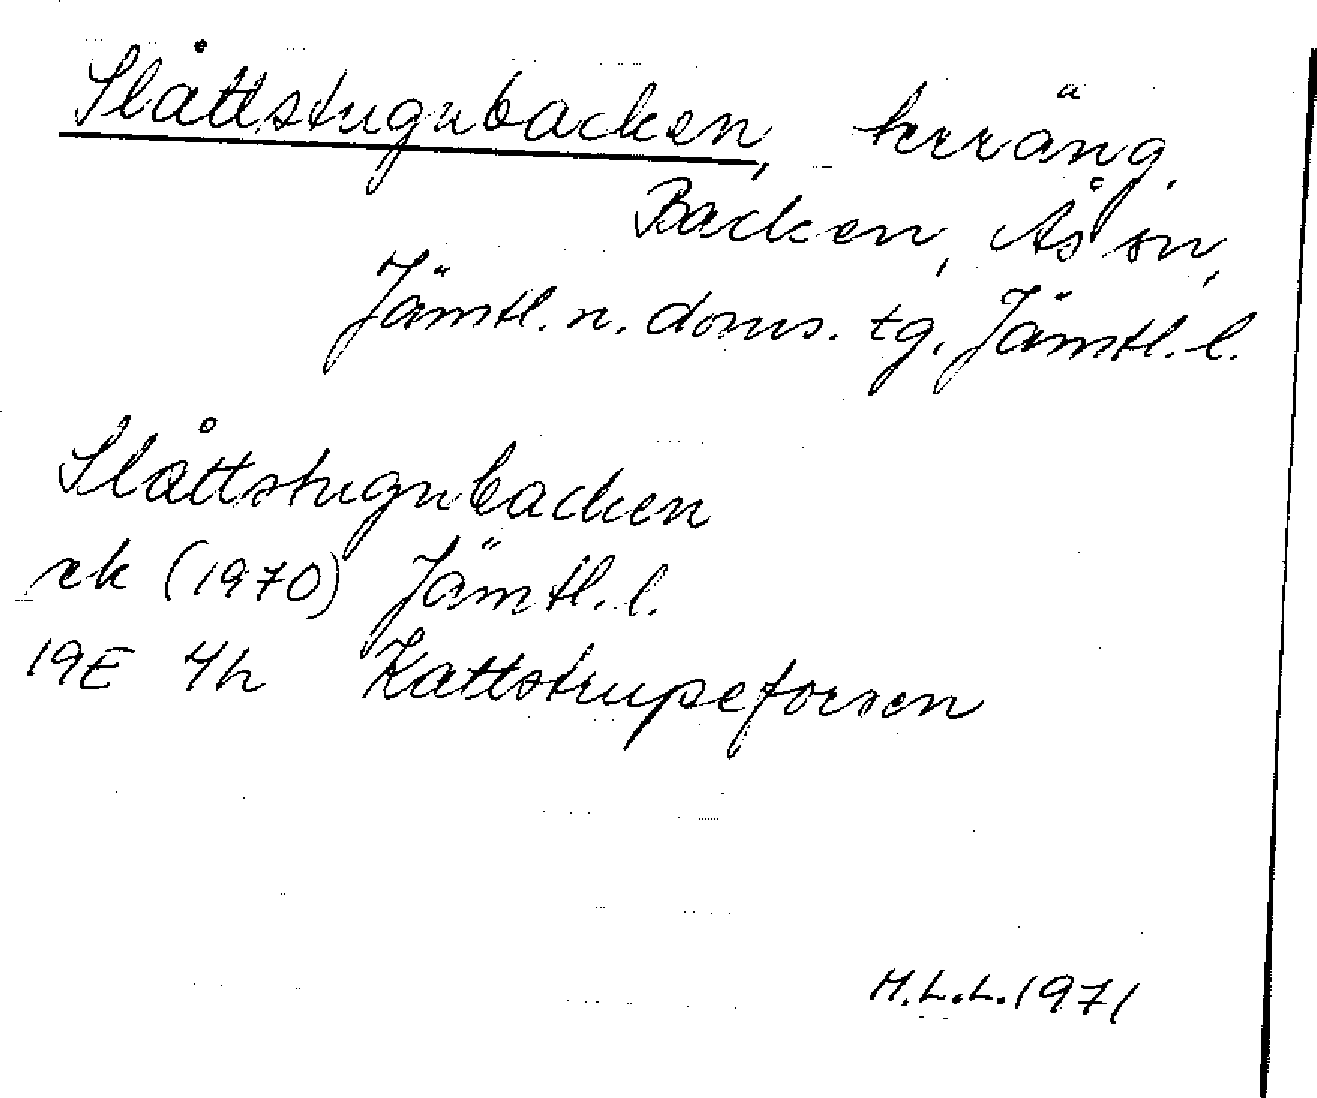 Slåttstugubacken, terräng.
Backen, Ås sn,
Jämtl. n. doms. tg, Jämtl. l.
Slåttstugubacken
rk (1970) Jämtl. l.
19E 4h Kattstrupeforsen
M.L.L. 1971